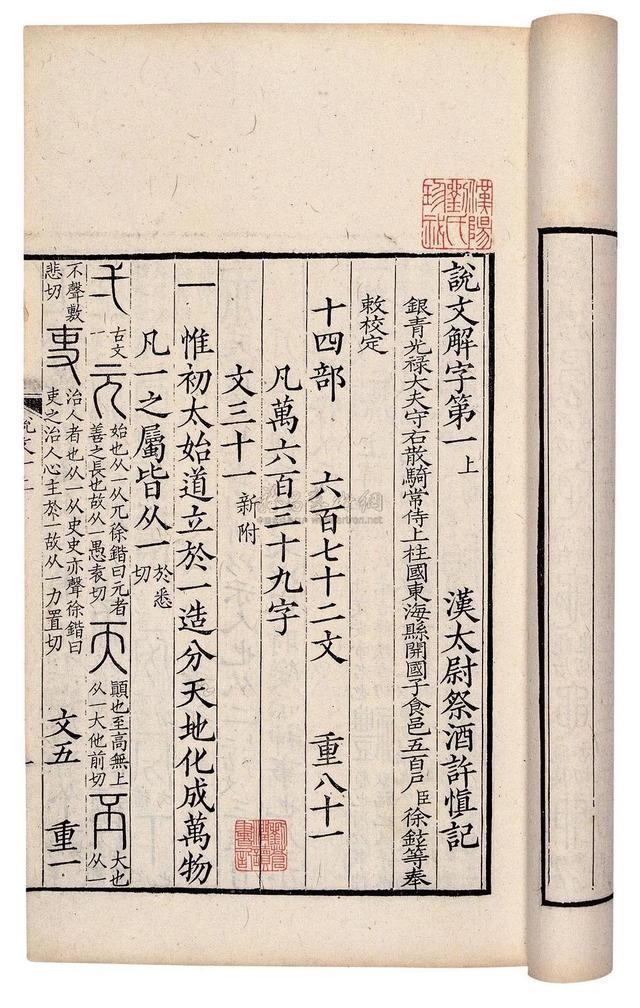 說文解字第一上 漢太尉祭酒許慎記
銀青光祿大夫守右散騎常侍上柱國東海縣開國子食邑五百戶臣徐鉉等奉
敕校定
十四部 六百七十二文 重八十一
凡萬六百三十九字
文三十一 新附
一 惟初太始道立於一造分天地化成萬物
凡一之屬皆从一 於悉切
弌 古文一 元 始也从一从兀徐鍇曰元者善之長也故从一愚袁切 天 顚也至高無上从一大他前切 丕 大也从一
不聲敷悲切 吏 治人者也从一从史史亦聲徐鍇曰吏之治人心主於一故从一力置切 文五 重一
漢陽劉氏